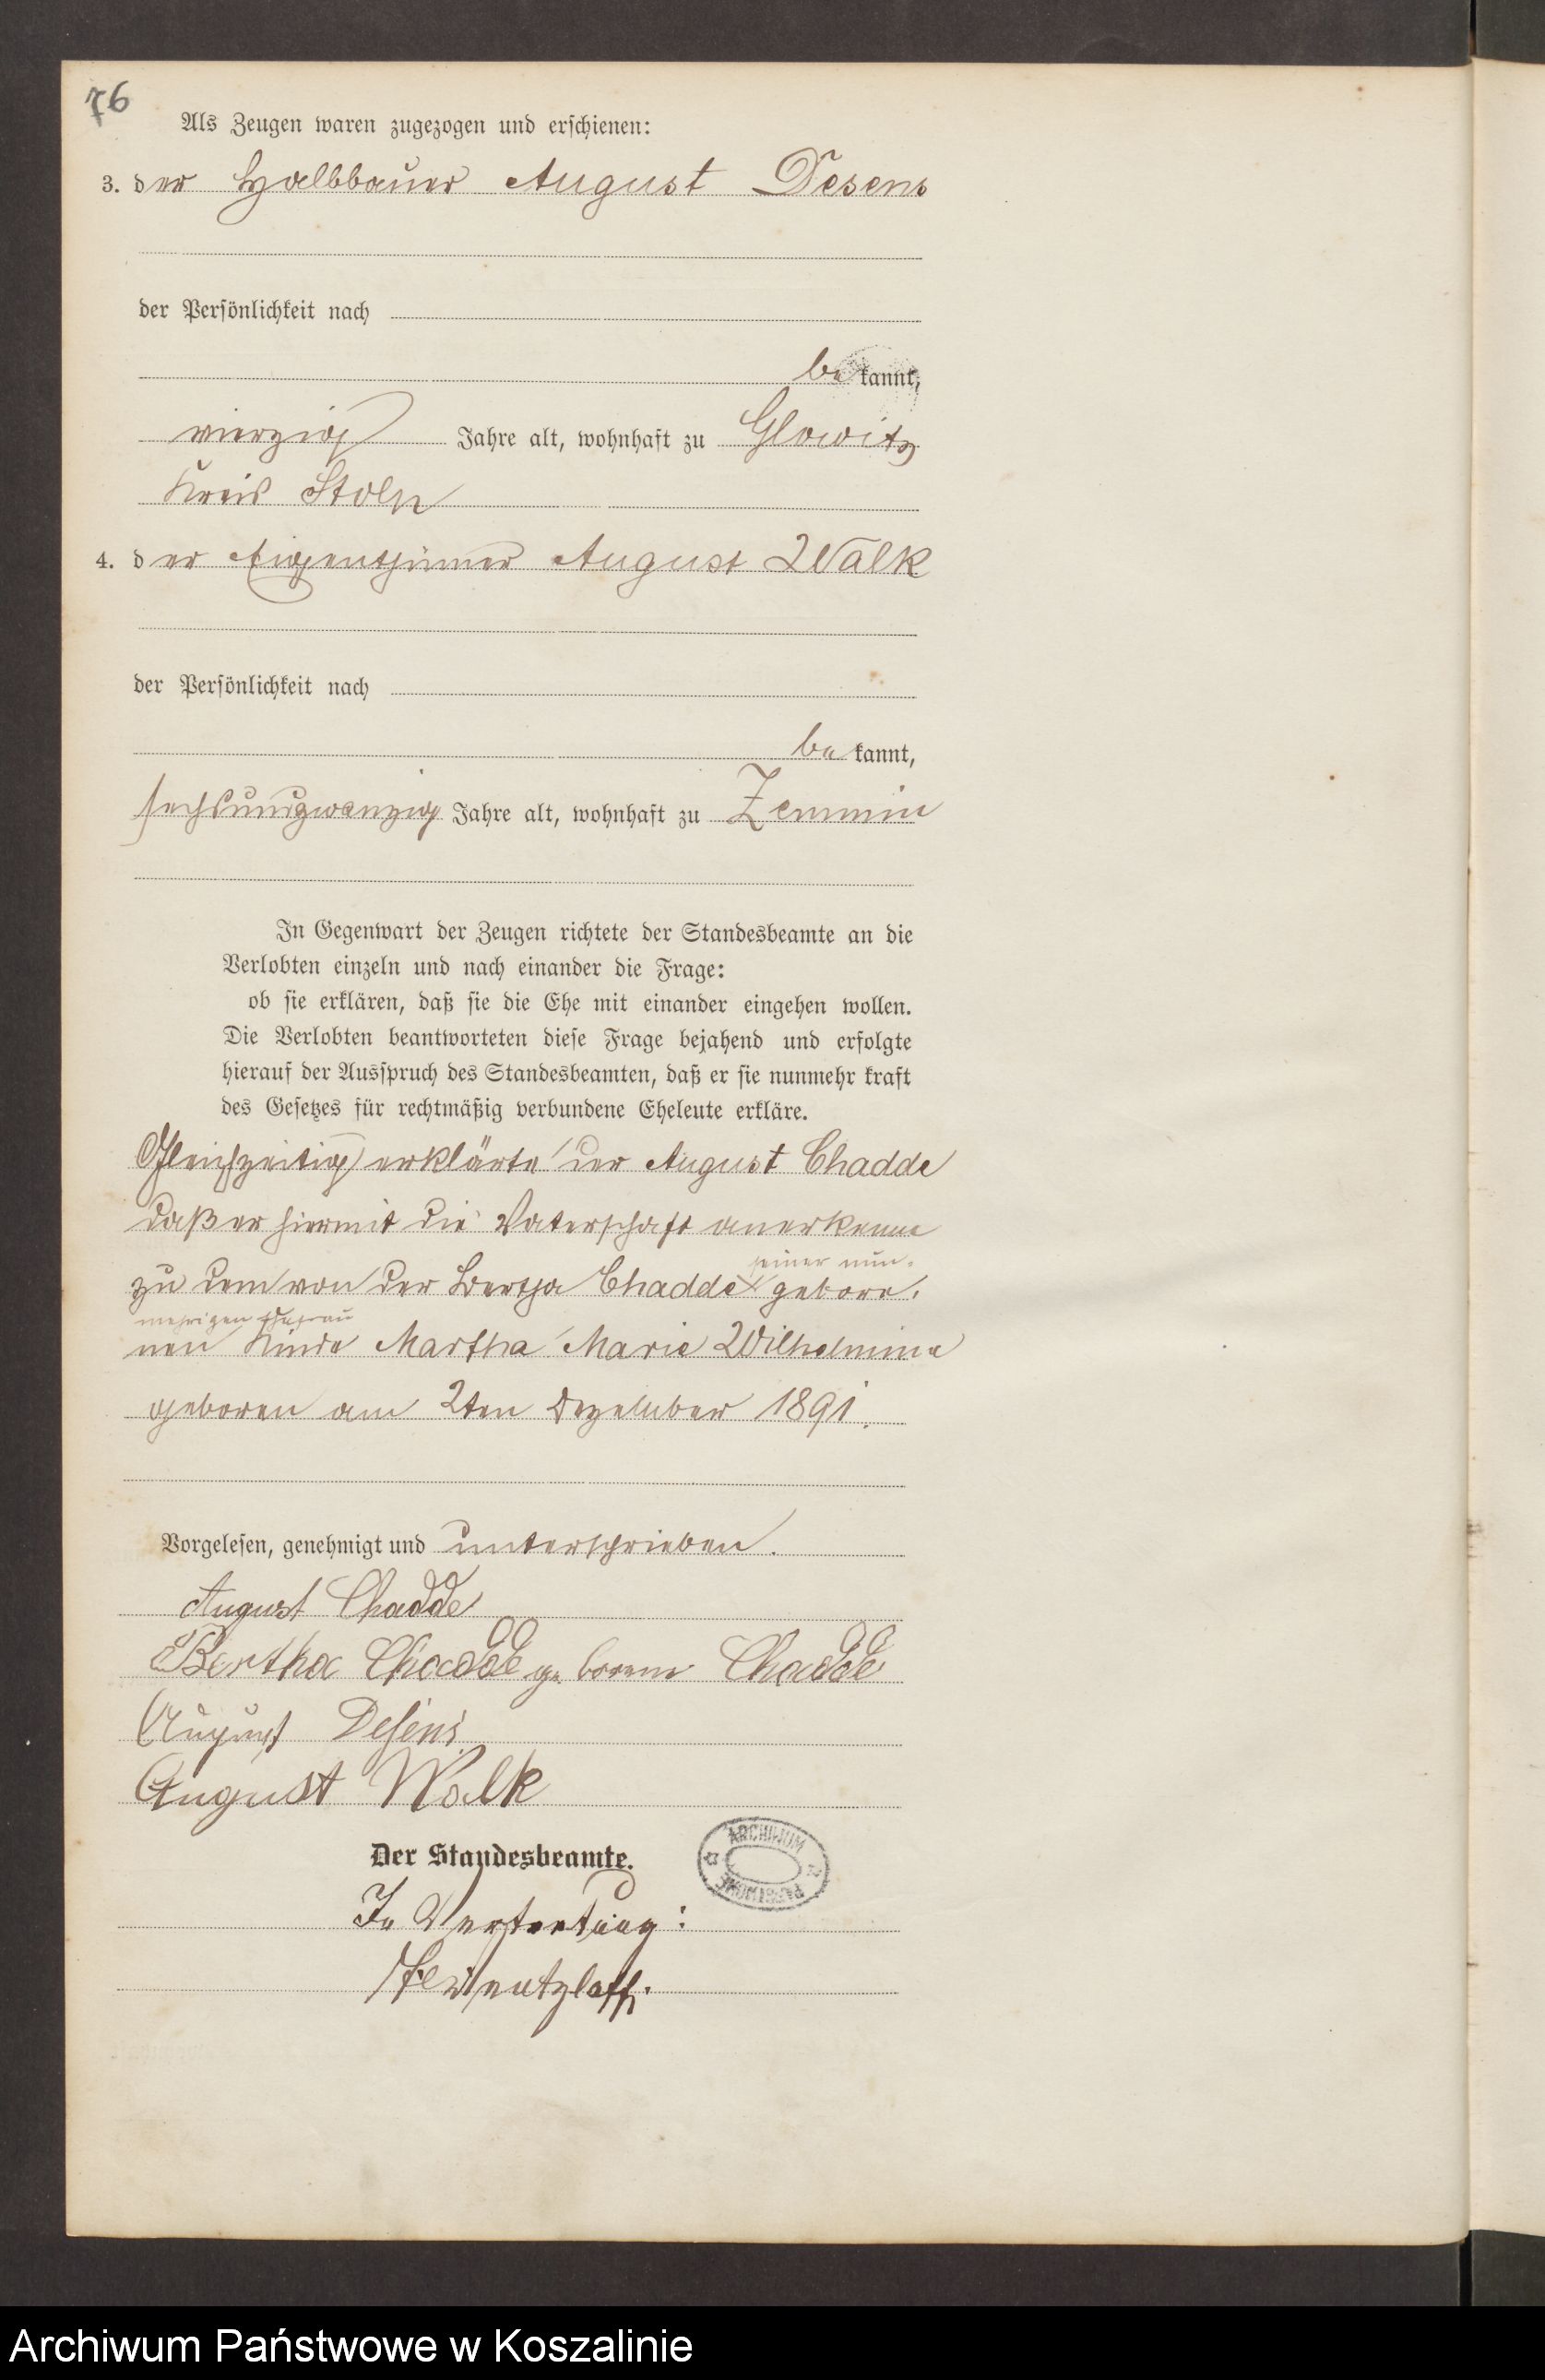 76
Als Zeugen waren zugezogen und erschienen:
3. der Halbbauer August Desens
der Persönlichkeit nach
be kannt,
vierzig Jahre alt, wohnhaft zu Glowitz
Kreis Stolp
4. der Eigenthümer August Walk
der Persönlichkeit nach
be kannt,
sechsundzwanzig Jahre alt, wohnhaft zu Zemmin
In Gegenwart der Zeugen richtete der Standesbeamte an die
Verlobten einzeln und nach einander die Frage:
ob sie erklären, daß sie die Ehe mit einander eingehen wollen.
Die Verlobten beantworteten diese Frage bejahend und erfolgte
hierauf der Ausspruch des Standesbeamten, daß er sie nunmehr kraft
des Gesetzes für rechtmäßig verbundene Eheleute erkläre.
Gleichzeitig erklärte der August Chadde
daß er hiermit die Vaterschaft anerkenne
seiner nun-
zu dem von der Bertha Chadde gebore-
mehrigen Ehefrau
nen Kinde Martha Marie Wilhelmine
geboren am 2ten Dezember 1891.
Vorgelesen, genehmigt und unterschrieben.
August Chadde
Bertha Chadde geborene Chadde
August Desens
August Walk
Der Standesbeamte.
ARCHIWUM
In Vertretung:
Archiwum Państwowe w Koszalinie